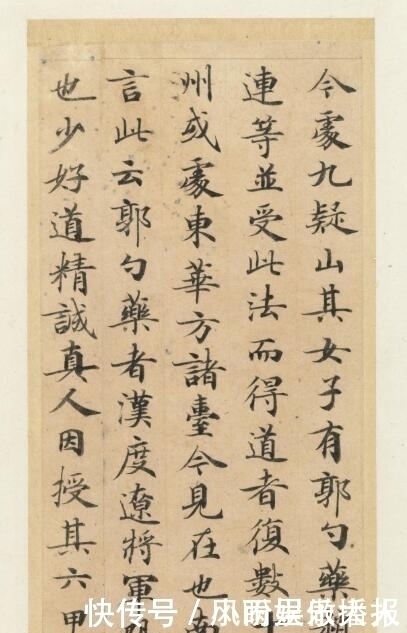 今處九疑山其女子有郭勺藥
連等並受此法而得道者復數
州或處東華方諸臺今見在也南
言此云郭勺藥者漢度遼將軍
也少好道精誠真人因授其六甲
快传号 / 播报